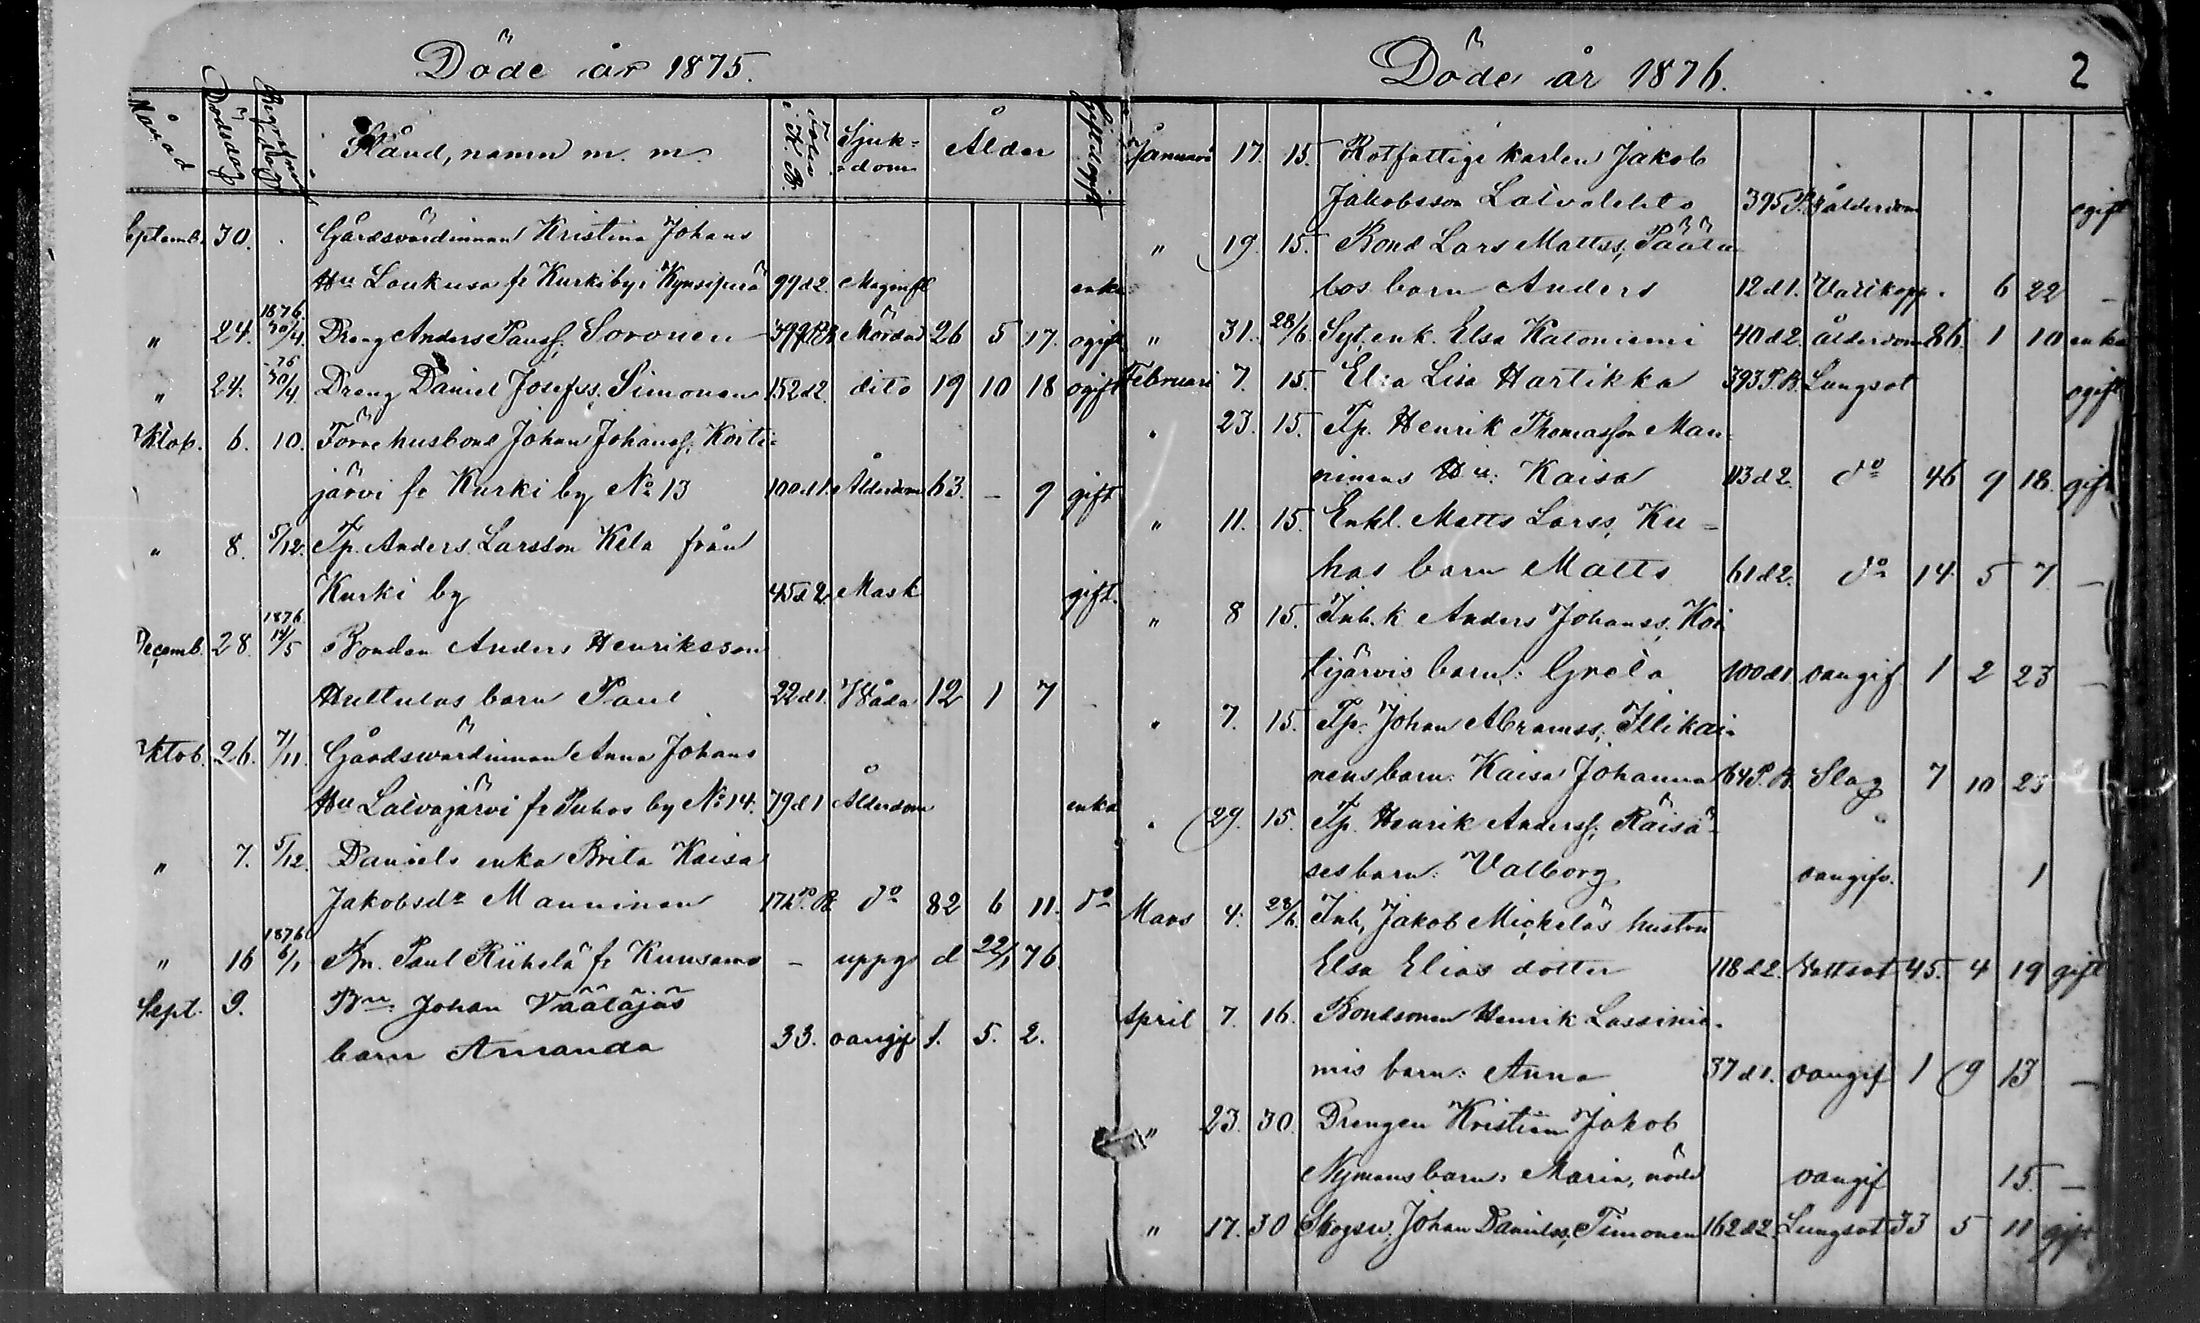 Döde år 1875.
Månad Dödsdag Begrafningsdag Stånd, namn m. m. Folio i K. B. Sjuk-dom Ålder Gift el. ogift
Septemb. 30. Gårdsvärdinnan Kristina Johans
Hu Loukusa fr Kurki by i Kynsiperä 99 d2. Maginfl enka
" 24. 1876 30/4. Dreng Anders Paulss. Soronen 399 P.B. Mördad 26 5 17. ogift
" 24. -76 30/4. Dreng Daniel Josefss. Simonen 152 d2. dito 19 10 18 ogift
Oktob. 6. 10. Förre husbond Johan Johanss. Koite-
järvi fr Kurki by No 13 100 d1. Ålderdom 63. – 9 gift
" 8. 5/12. Tp. Anders Larsson Kela från
Kurki by 45 d2. Mask gift.
Decemb. 28. 1876 14/5 Bonden Anders Henriksson
Hultulas barn Paul 22 d1. Wåda 12 1 7 -
Oktob. 26. 7/11. Gårdsvärdinnan Anna Johans
Hu Latvajärvi fr Puhos by No 14. 79 d1 Ålderdom enka
" 7. 5/12. Daniels enka Brita Kaisa
Jakobsdr Manninen 174 P. B. do 82 6 11. do
" 16 1876 6/1 Bn. Paul Riihelä fr Kuusamo – uppg d 22/1 76.
Sept. 9. Bn Johan Väätäjäs
barn Amanda 33. oangif 1. 5. 2.
Döde år 1876. 2
Januari 17. 15. Rotfattige karlen Jakob
Jakobsson Latvalehto 395 P.B. ålderdom ogift
" 19. 15. Bond. Lars Mattss. Pääta
los barn Anders 12 d1. Vattkopp. 6 22 –
" 31. 28/6 Syt. enk. Elsa Katoniemi 40 d2. ålderdom 86. 1 10 enka
Februari 7. 15. Elsa Lisa Hartikka 393 P.B. Lungsot ogift
" 23. 15. Tp. Henrik Thomasson Man-
ninens Hu: Kaisa 113 d2. do 46 9 18. gift
" 11. 15. Enkl. Matts Larss. Ku-
has barn Matts 61 d2. do 14 5 7 –
" 8 15. Inh. k. Anders Johanss. Koi
tijärvis barn: Greta 100 d1 oangif 1 2 23 –
" 7. 15. Tp. Johan Abramss. Illikai-
nens barn: Kaisa Johanna 164 P. B. Slag 7 10 23
" 29. 15. Tp. Henrik Anderss. Räisä-
ses barn: Valborg oangifv. 1
Mars 4. 28/6. Inh. Jakob Mickeläs hustru
Elsa Elias dotter 118 d2. Vattsot 45. 4 19 gift
April 7. 16. Bondsonen Henrik Lassinie-
mis barn: Anna 37 d1. oangif 1 9 13 –
" 23. 30. Drengen Kristian Jakob
Nymans barn: Maria, nöddt oangif 15. –
" 17. 30 Skogsv. Johan Danielss. Timonen 162 d2. Lungsot 33 5 11 gift